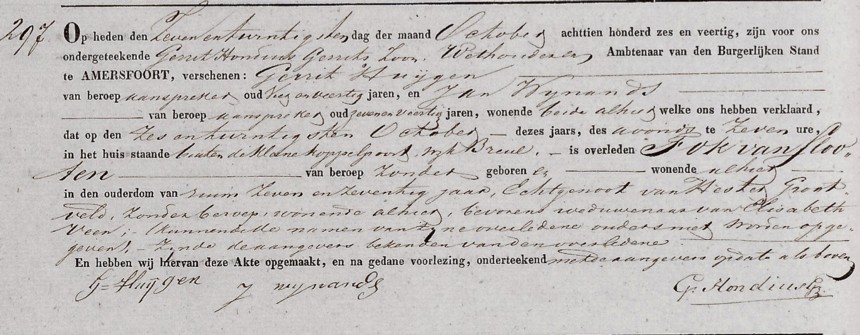 297. Op heden den Zevenentwintigsten dag der maand October achttien honderd zes en veertig, zijn voor ons
ondergeteekende Gerrit Hondius Gerrits Zoon, Wethouder en Ambtenaar van den Burgerlijken Stand
te AMERSFOORT, verschenen: Gerrit Huijgen
van beroep aanspreker oud en veertig jaren, en Jan Wijnands
van beroep aanspreker oud zevenenveertig jaren, wonende beide alhier welke ons hebben verklaard,
dat op den Zesentwintigsten October dezes jaars, des avonds te Zeven ure,
in het huis staande buiten de Kleine Koppelpoort, wijk Breul, is overleden Fok van Sloo-
ten van beroep zonder geboren en wonende alhier
in den ouderdom van ruim Zeven en Zeventig jaar, Echtgenoot van Hester Groot
veld, Zonder beroep, wonende alhier, bevorens weduwenaar van Elisabeth
Veen; kunnende de namen van zijne overledene ouders niet worden opge-
geven, Zijnde de aangevers bekenden van den overledene
En hebben wij hiervan deze Akte opgemaakt, en na gedane voorlezing, onderteekend met de aangevers op dato als boven
G Huijgen J wijnands G. Hondius Gz